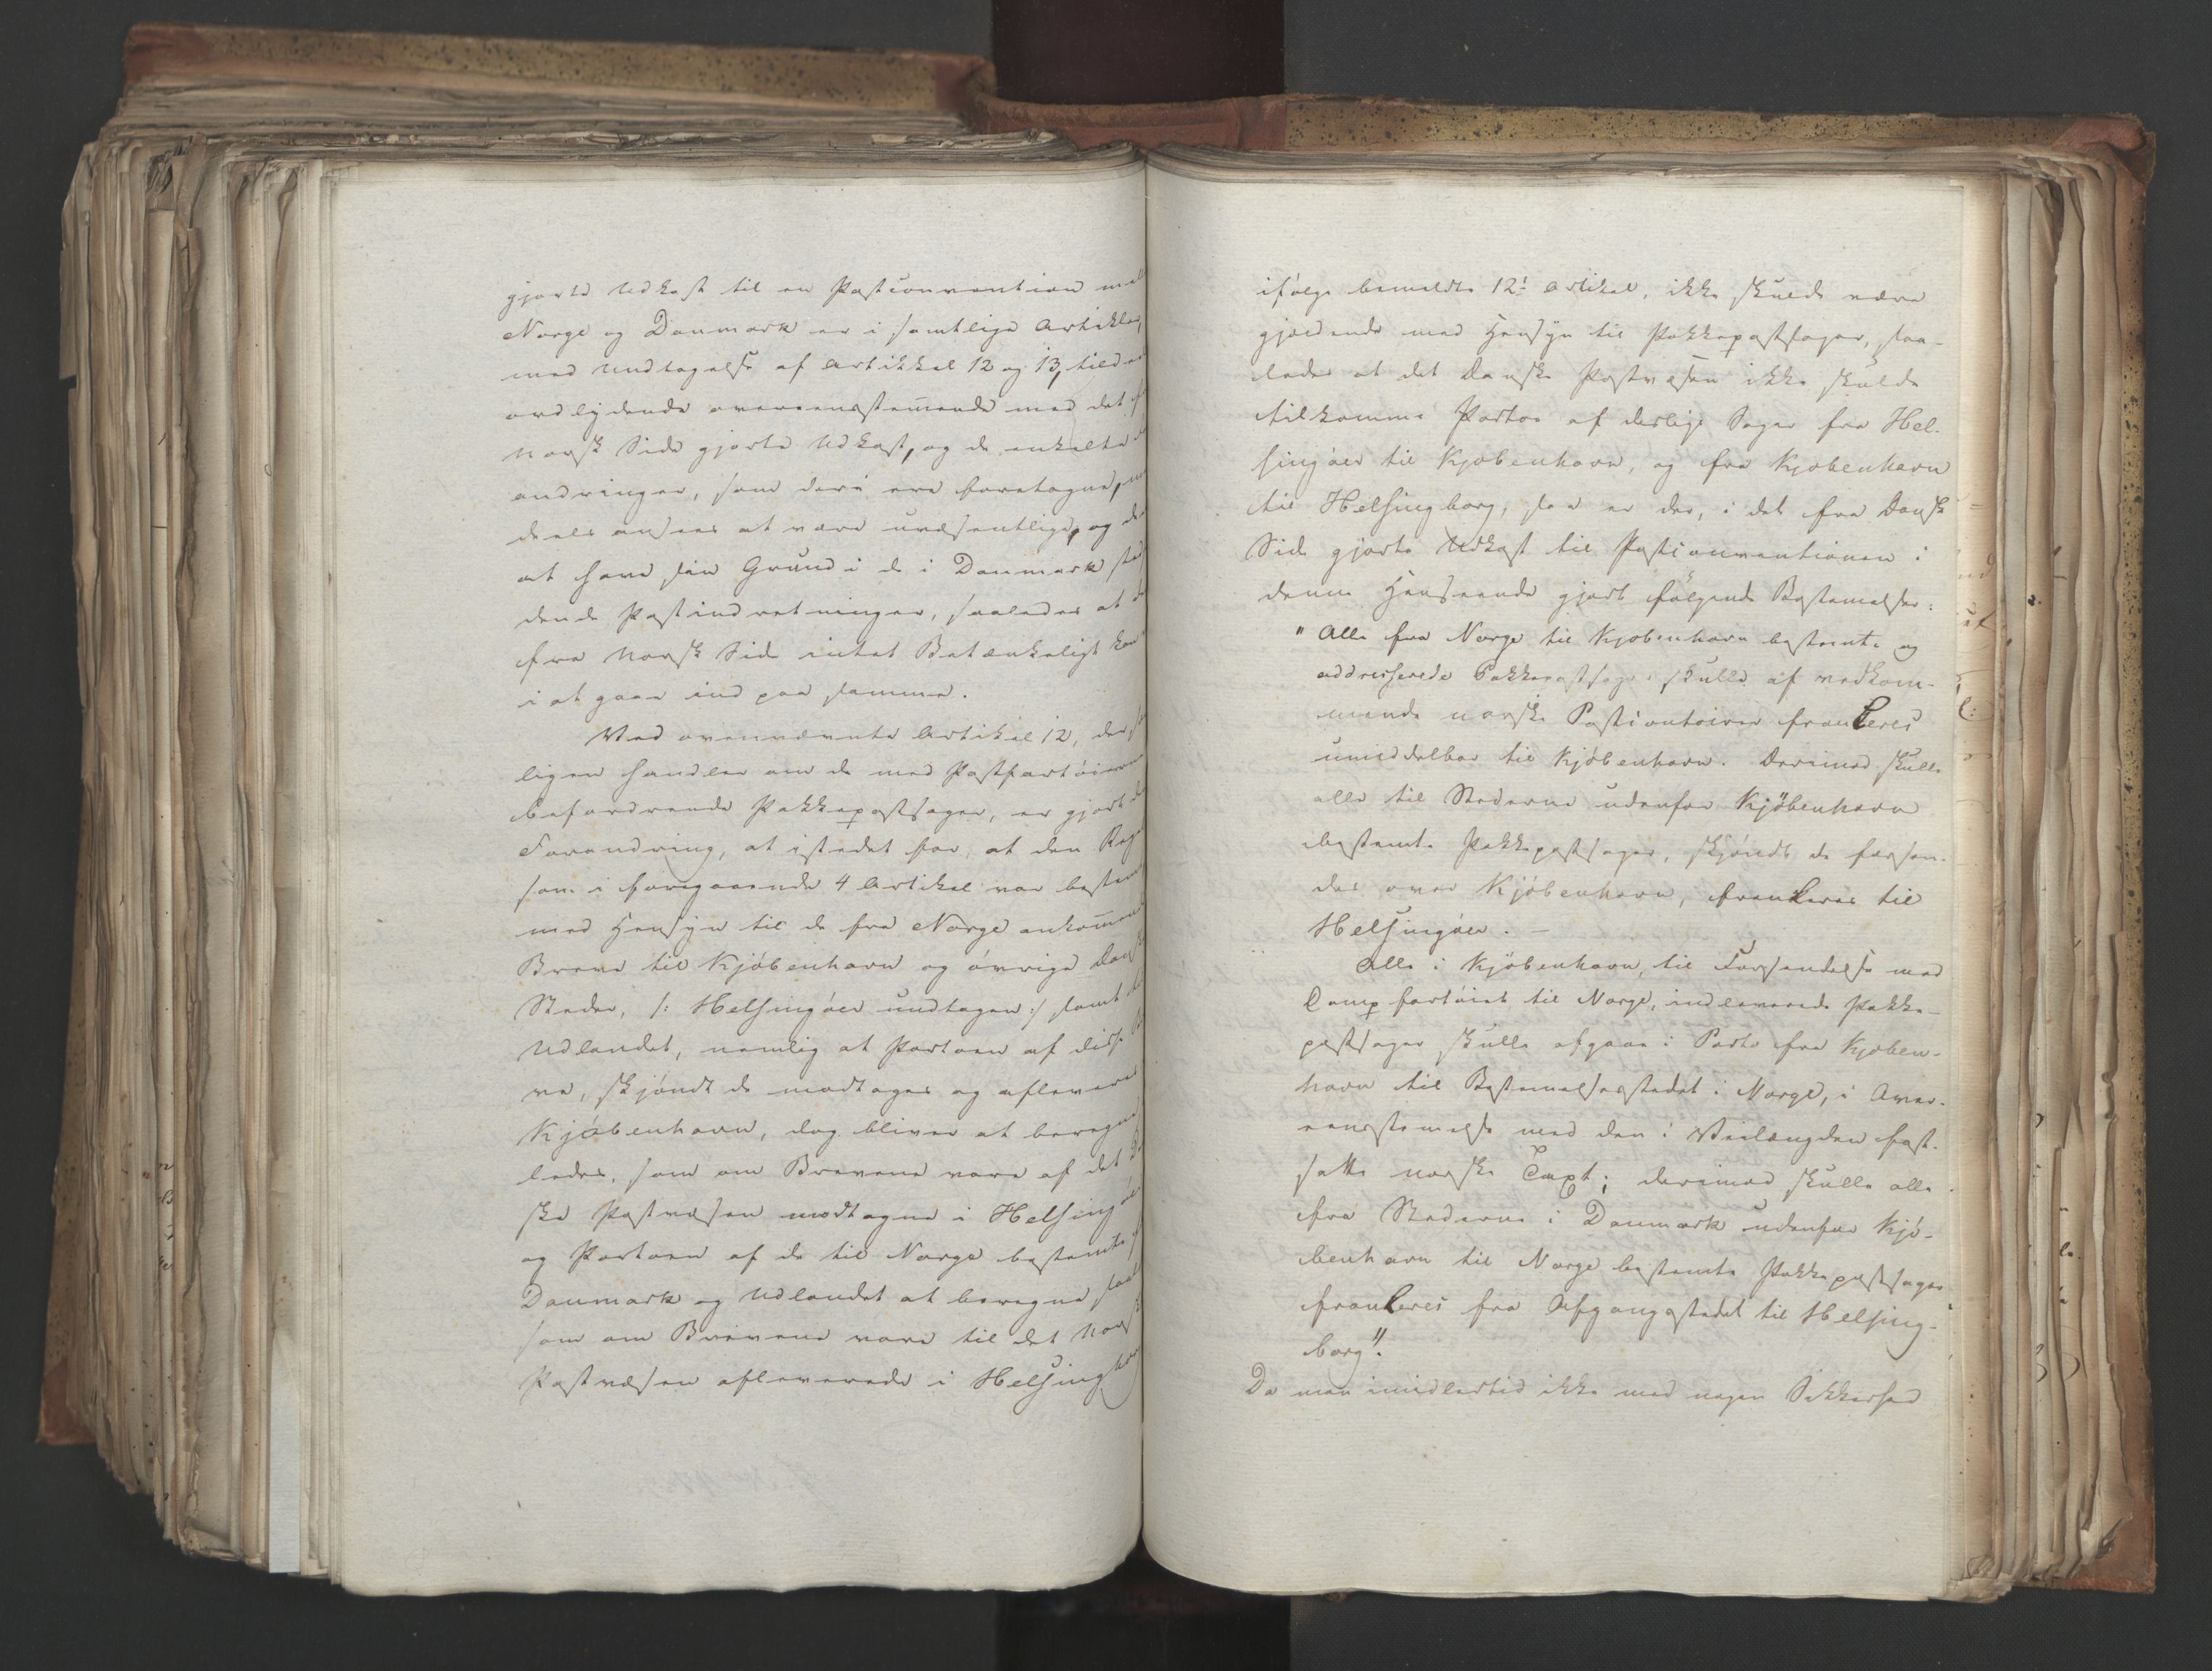 gjorte Udkast til en Postconvention mell
Norge og Danmark er i samtlige Artikler,
med Undtagelse af Artikkel 12 og 13, tildeels
ordlydende overeensstemmende med det fra
Norsk Side gjorte Udkast, og de enkelte
andringer, som deri ere foretagne,
deels ansees at være uvæsentlige, og deels
at have sin Grund i de i Danmark sted
dende Postindretninger, saaledes at
fra Norsk Side intet Betænkeligt kan
i at gaae ind paa samme.
Ved ovennævnte Artikel 12, der
ligen handler om de med Postfartøierne
befordrende Pakkepostsager, er gjort
Forandring, at istedet for, at den Regel
som i foregaaende 4 Artikel var bestemt
med Hensyn til de fra Norge ankommende
Breve til Kjøbenhavn og øvrige Danske
Steder, /: Helsingøer undtagen :/ samt
Udlandet, nemlig at Portoen af disse Bre
ve, skjøndt de modtages og afleveres
Kjøbenhavn, dog bliver at beregne
ledes, som om Brevene vare af det Dan
ske Postvæsen modtagne i Helsingøer
og Portoen af de til Norge bestemte
Danmark og Udlandet at beregne saal
som om Brevene vare til det Norske
Postvæsen afleverede i Helsingborg
ifølge bemeldte 12te Artikel, ikke skulde være
gjældende med Hensyn til Pakkepostsager, saa-
ledes at det Danske Postvæsen ikke skulde
tilkomme Portoe af deslige Sager fra Hel-
singøer til Kjøbenhavn, og fra Kjøbenhavn
til Helsingborg, saa er der, i det fra Dansk
Side gjorte Udkast til Postconventionen i
denne Henseende gjort følgende Bestemelser:
"Alle fra Norge til Kjøbenhavn bestemte og
addresserede Pakkepostsager skulle af vedkom-
mende norske Postcontoirer frankeres
umiddelbar til Kjøbenhavn. Derimod skulle
alle til Stederne udenfor Kjøbenhavn
bestemte Pakkepostsager, skjøndt de forsen-
des over Kjøbenhavn, frankeres til
Helsingøer. -
Alle i Kjøbenhavn, til Forsendelse med
Dampfartøiet til Norge, indleverede Pakke-
postsager skulle afgaae i Porto fra Kjøben-
havn til Bestemelsesstedet i Norge, i Over-
eensstemelse med den i Veilængden fast-
satte norske Taxt; derimod skulle alle
fra Stederne i Danmark udenfor Kjø-
benhavn til Norge bestemte Pakkepostsager
frankeres fra Afgangsstedet til Helsing-
borg".
Da man imidlertid ikke med nogen Sikkerhed